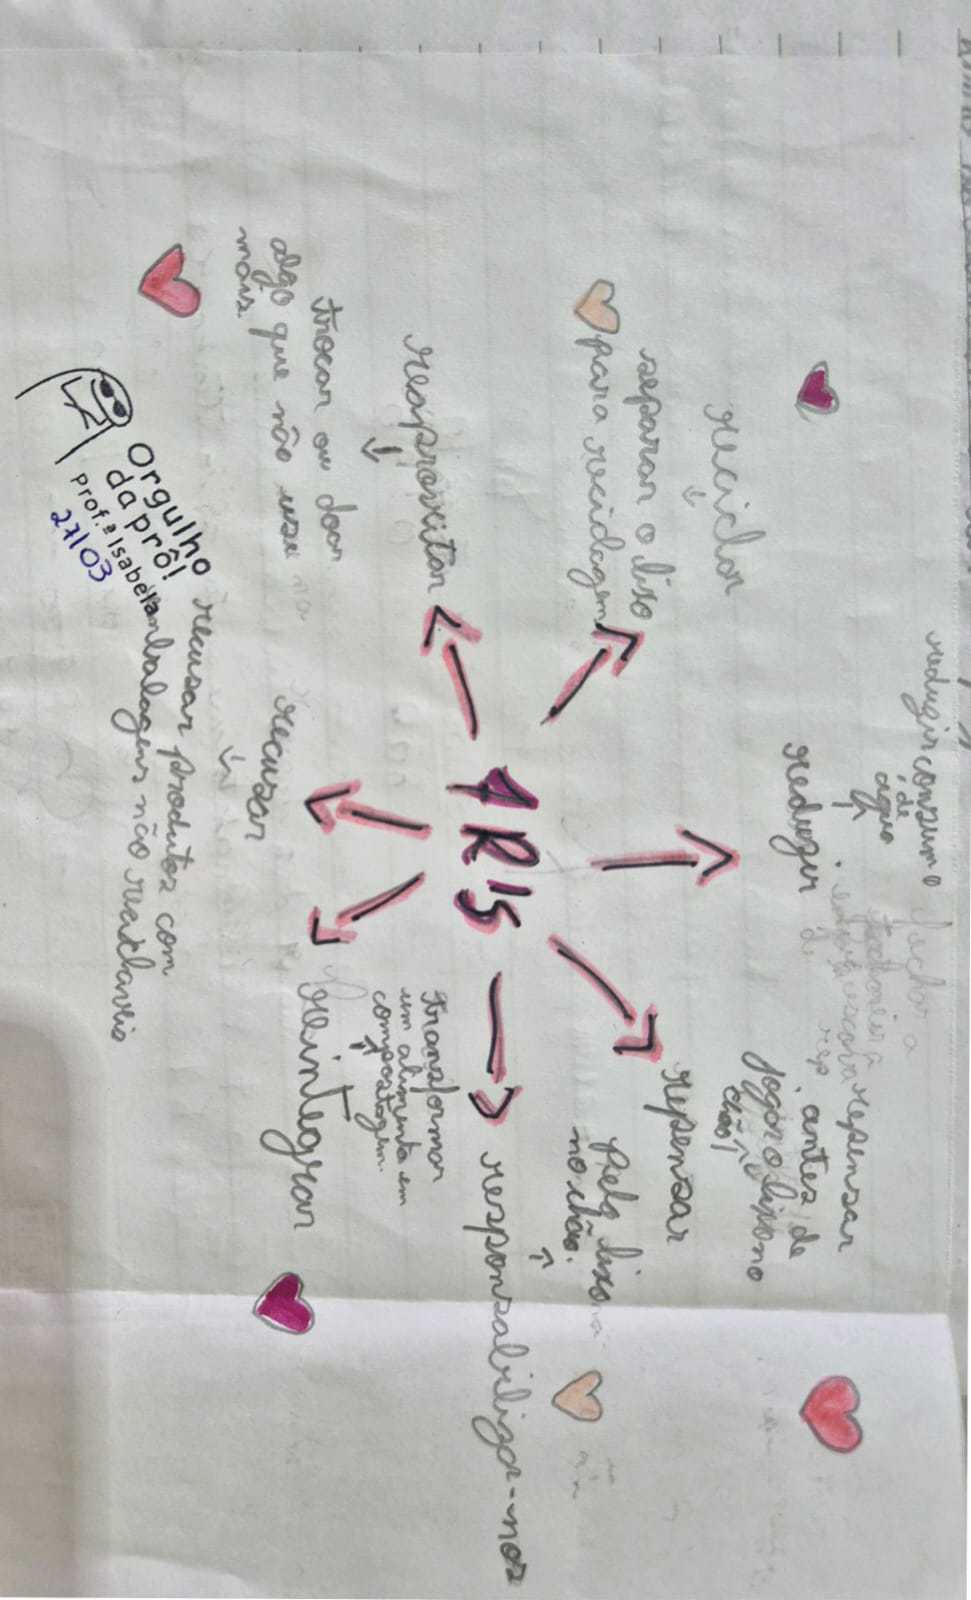 reduzir consumo
de
água
reduzir
repensar
antes de
jogar o lixo no
chão
repensar
reciclar
separar o lixo
para reciclagem
7 R'S
pelo lixo
no chão.
responsabilizar-nos
resproveitar
trocar ou doar
algo que não usa
mais
transformar
um alimento em
compostagem.
Reintegrar
recusar
recusar produtos com
embalagens não
Orgulho
da prô!
Prof.ª Isabela
27/03